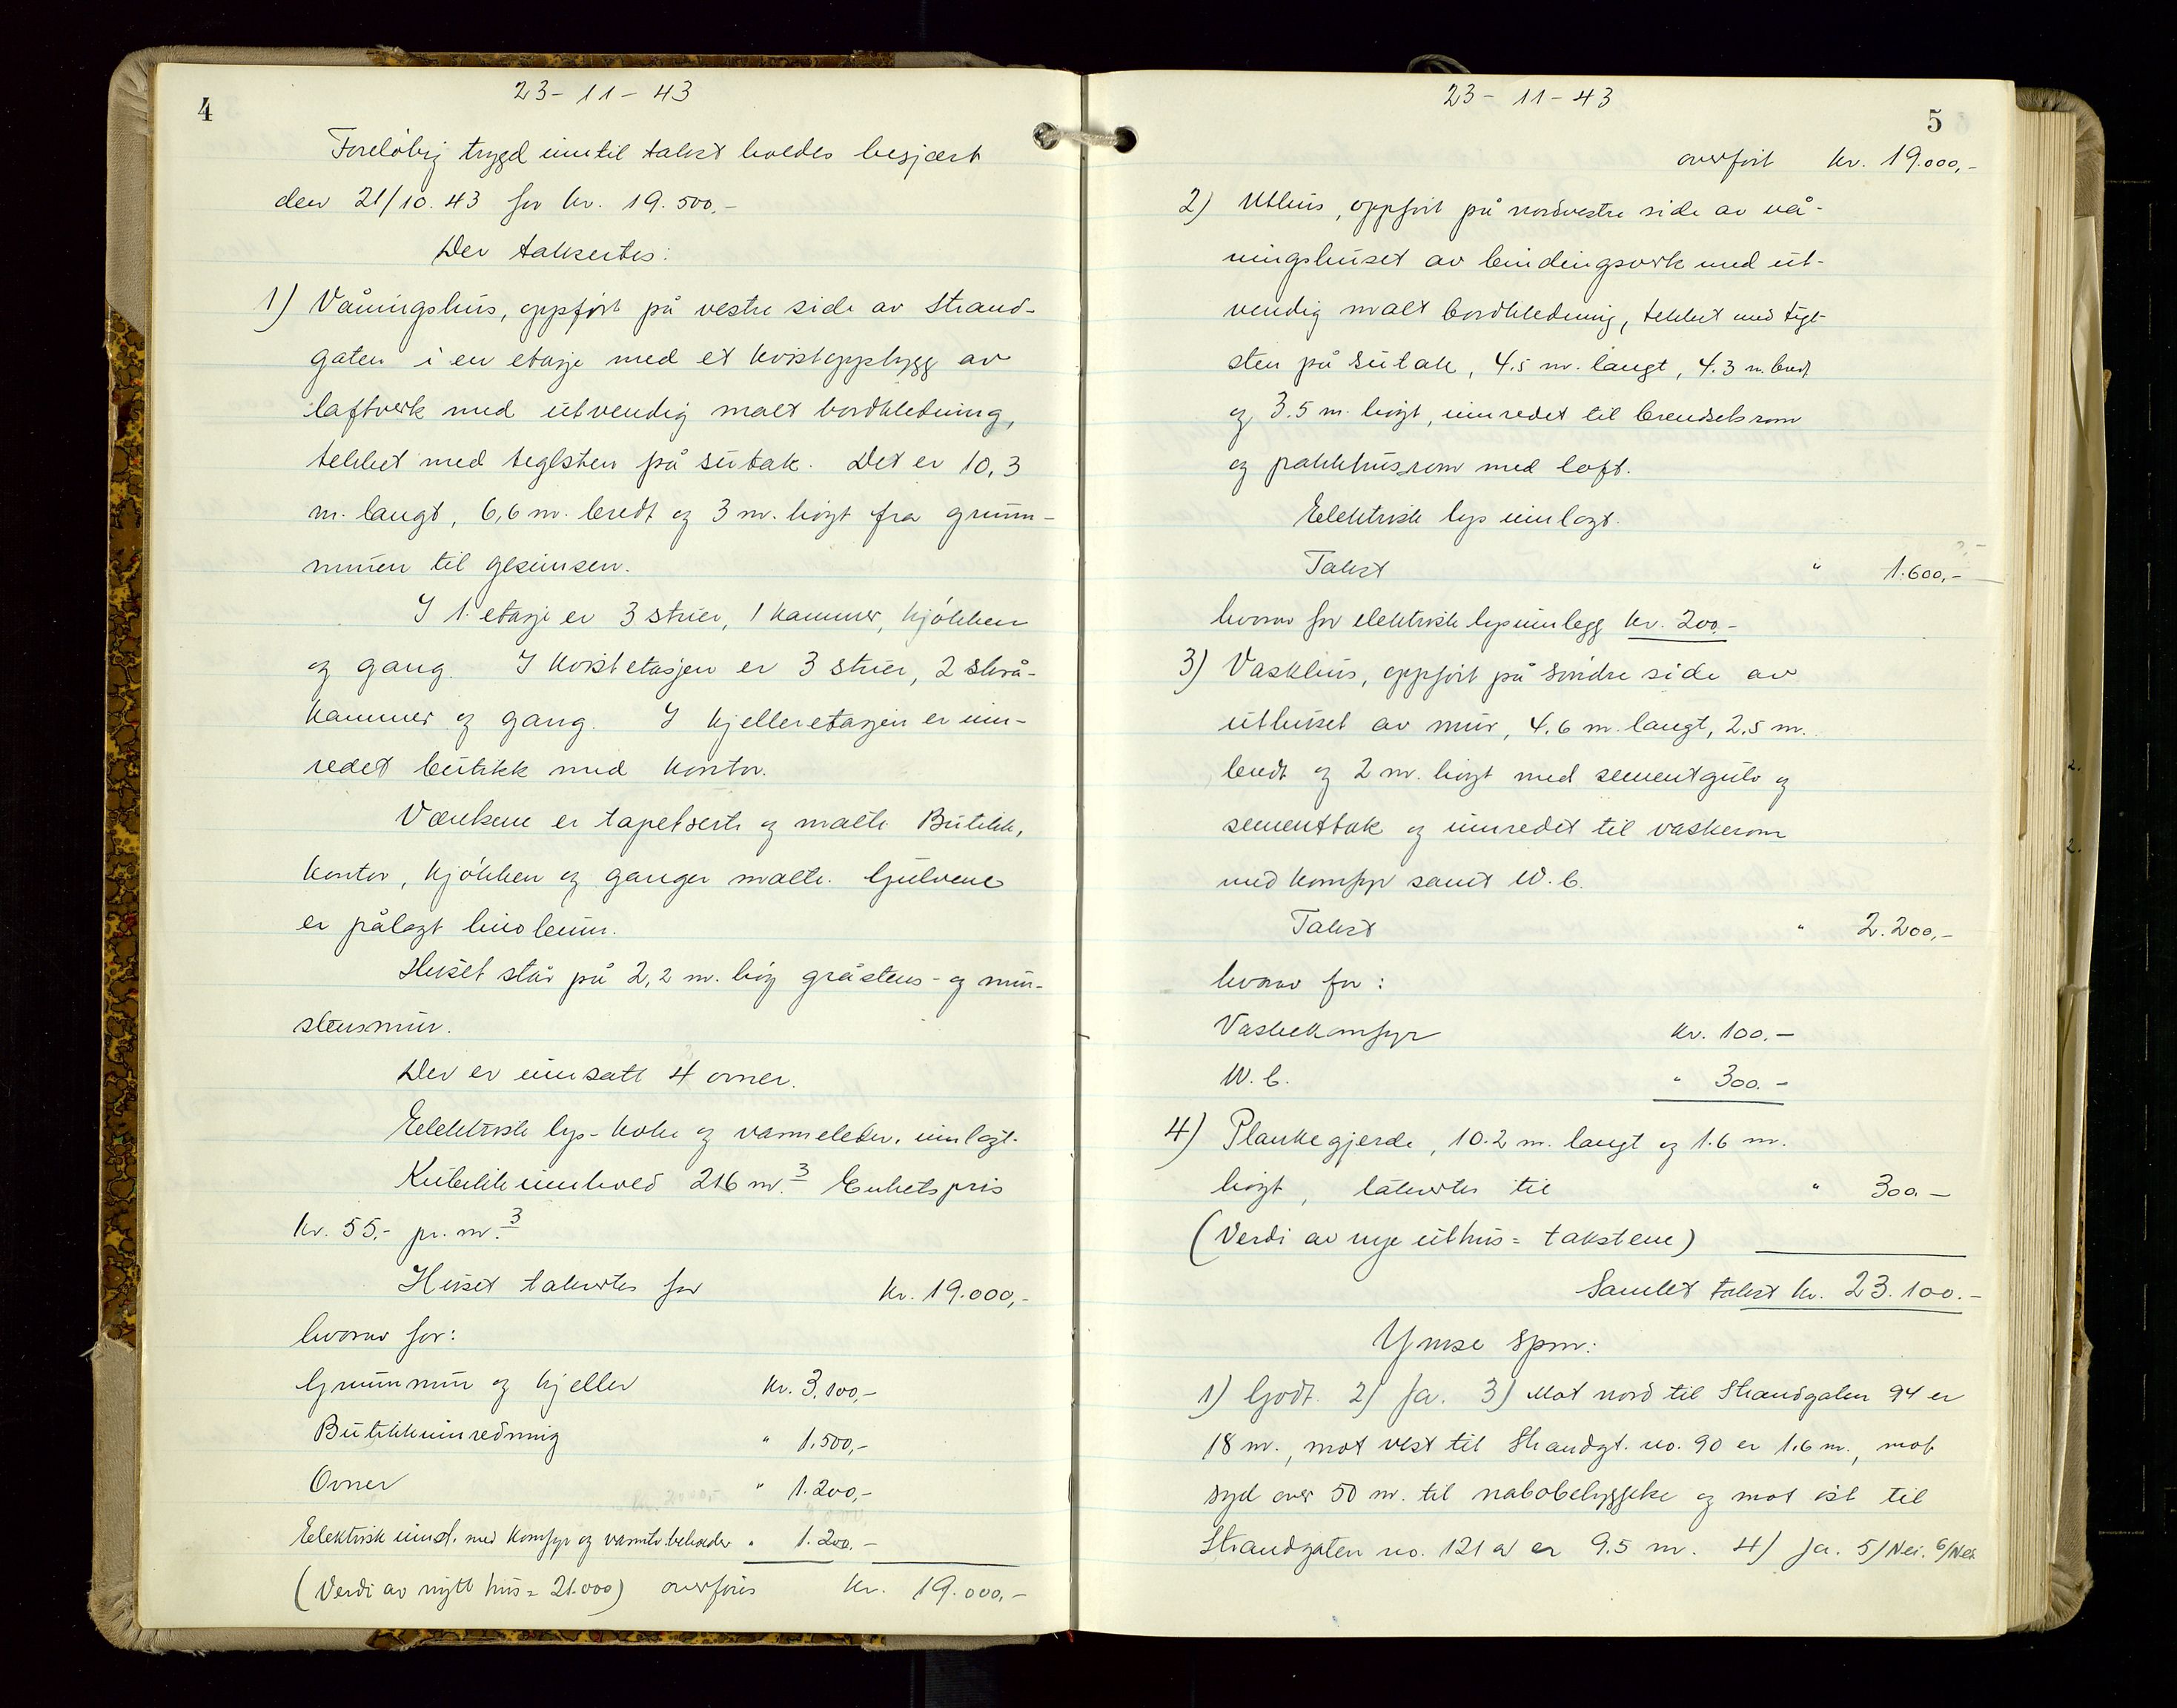 4
23-11-43
Foreløbig trygd inntil takst holdes besjært
den 21/10.43 for kr. 19.500,-
Der takseres:
1) Våningshus, oppført på vestre side av Strand-
gaten i en etasje med et kvistoppbygg av
laftverk med utvendig malt bordkledning,
tekket med teglsten på sutak. Det er 10,3
m. langt, 6,6 m. bredt og 3 m. høgt fra grunn-
muren til gesimsen.
I 1. etasje er 3 stuer, 1 kammer, kjøkken
og gang. I kvistetasjen er 3 stuer, 2 skrå-
kammer og gang. I kjelleretasjen er inn-
redet butikk med kontor.
Værelsene er tapetserte og malte. Butikk,
kontor, kjøkken og ganger malte. Gulvene
er pålagt linoleum.
Huset står på 2,2 m. høg gråstens- og mur-
stensmur.
Der er innsatt 4 ovner.
Eelektrisk lys- koke og vannelekr. innlagt.
Kubikkinnhold 216 m.3 Enhetspris
kr. 55,- pr. m.3
Huset takseres for kr. 19.000,-
hvorav for:
Grunnmur og kjeller kr. 3.100,-
Butikkinnredning " 1.500,-
Ovner " 1.200,-
Eelektrisk innst. med komfyr og varmtv.beholder " 1.200.-
(Verdi av nytt hus = 21.000) overføres kr. 19.000,-
23-11-43
5
overført kr. 19.000,-
2) Uthus, oppført på nordvestre side av vå-
ningshuset av bindingsverk med ut-
vendig malt bordkledning, tekket med tegl-
sten på sutak, 4.5 m. langt, 4.3 m. bredt
og 3.5 m. høgt, innredet til brendselsrom
og pakkhusrom med loft.
Eelektrisk lys innlagt.
Takst " 1.600,-
hvorav for elektrisk lysinnlegg kr. 200.-
3) Vaskhus, oppført på søndre side av
uthuset av mur, 4.6 m. langt, 2.5 m.
bredt og 2 m. høgt med sementgulv og
sementtak og innredet til vaskerom
med komfyr samt W.C.
Takst " 2.200,-
hvorav for:
Vaskekomfyr kr. 100.-
W.C. " 300.-
4) Plankegjerde, 10.2 m. langt og 1.6 m.
høgt, takseres til " 300.-
(Verdi av nye uthus = takstene)
Samlet takst kr. 23.100.-
Ymse spm:
1) Godt. 2) Ja. 3) Mot nord til Strandgaten 94 er
18 m., mot vest til Strandgt. no. 90 er 1.6 m., mot
syd over 50 m. til nabobebyggelse og mot øst til
Strandgaten no. 121a er 9.5 m. 4) Ja. 5) Nei. 6) Nei